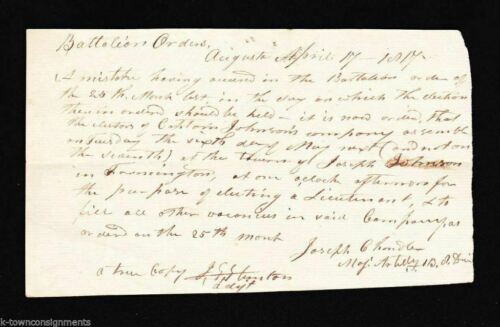 Battalion Orders,
Augusta April 17 - 1817 -
A mistake having occured in the Battalion order of
the 25th March last in the day on which the election
therein orderd should be held - it is now orderd, that
the electors of Captain Johnson's company assemble
on Tuesday the sixth day May next (and not on
the seventh) at the Tavern of Joseph Johnson
in Farmington, at one oclock afternoon for
the purpose of electing a Lieutenant, & to
fill all other vacancies in said Company as
orderd on the 25th march
Joseph Chandler
Maj. Artilly 1 B. 8. Divi
a true Copy
Adjt
k-townconsignments
k-townconsignments